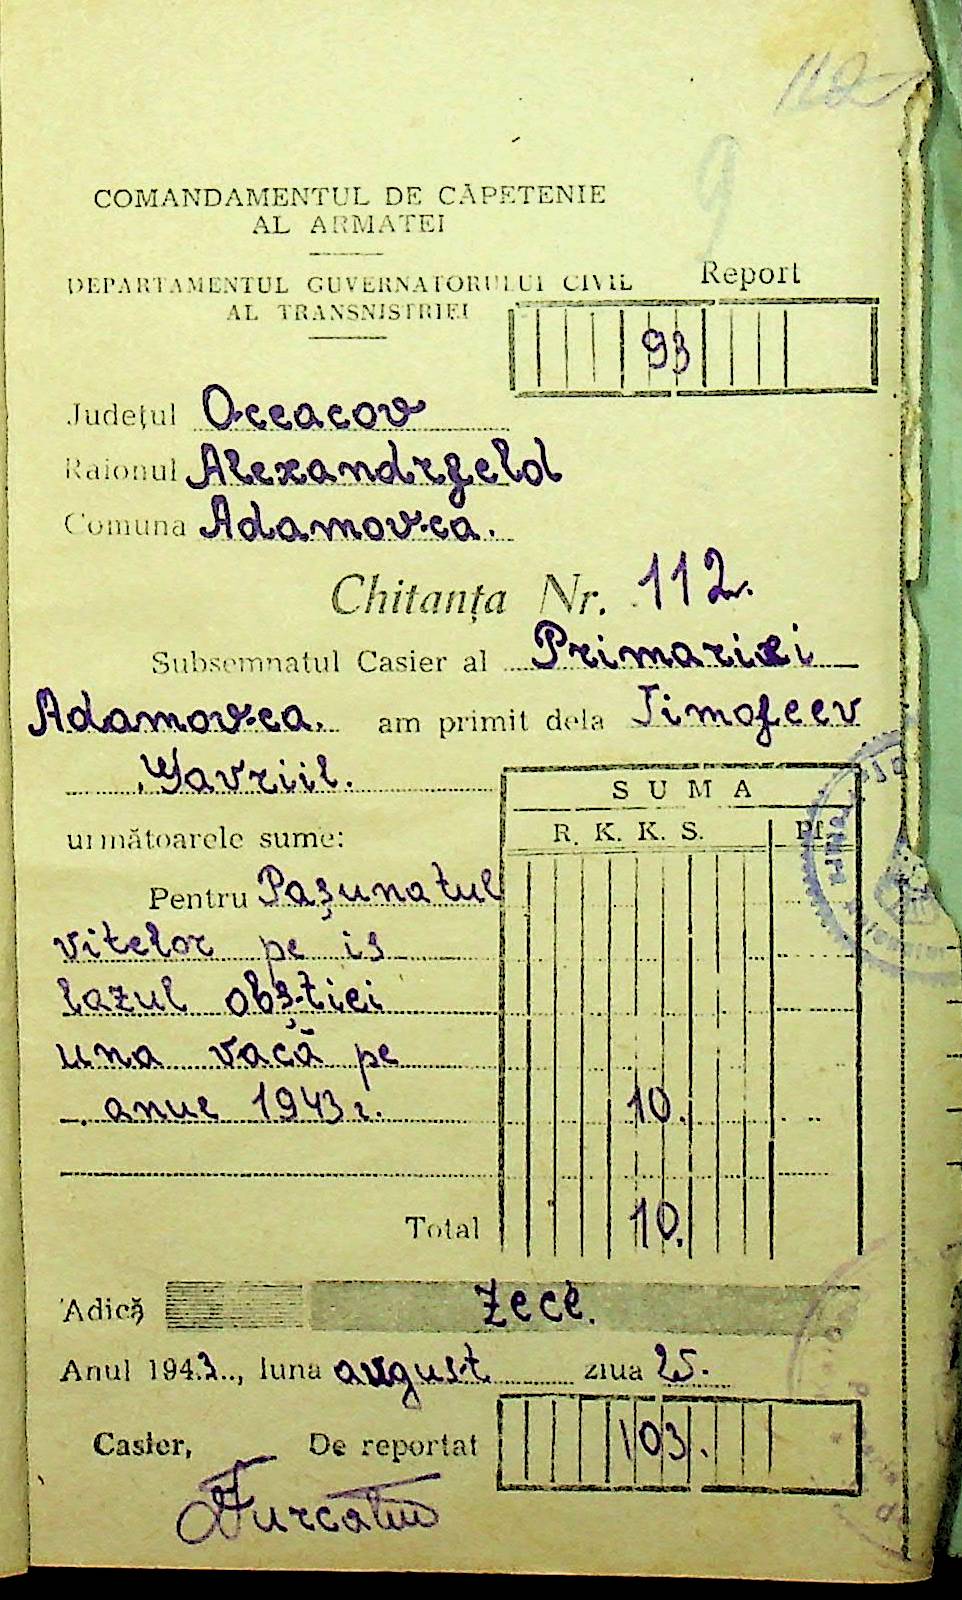 112
9
COMANDAMENTUL DE CĂPETENIE
AL ARMATEI
DEPARTAMENTUL GUVERNATORULUI CIVIL
AL TRANSNISTRIEI
Report
93
Județul Oceacov
Raionul Alexandrfeld
Comuna Adamovca.
Chitanța Nr. 112.
Subsemnatul Casier al Primariei
Adamovca. am primit dela Timofeev
Gavriil.
următoarele sume:
SUMA
R. K. K. S. Pf.
Pentru Pașunatul
vitelor pe is
lazul obștiei
una vacă pe
anue 1943 r. 10.
Total 10.
Adică zece.
Anul 1943.., luna august ziua 25.
Casier, De reportat 103.